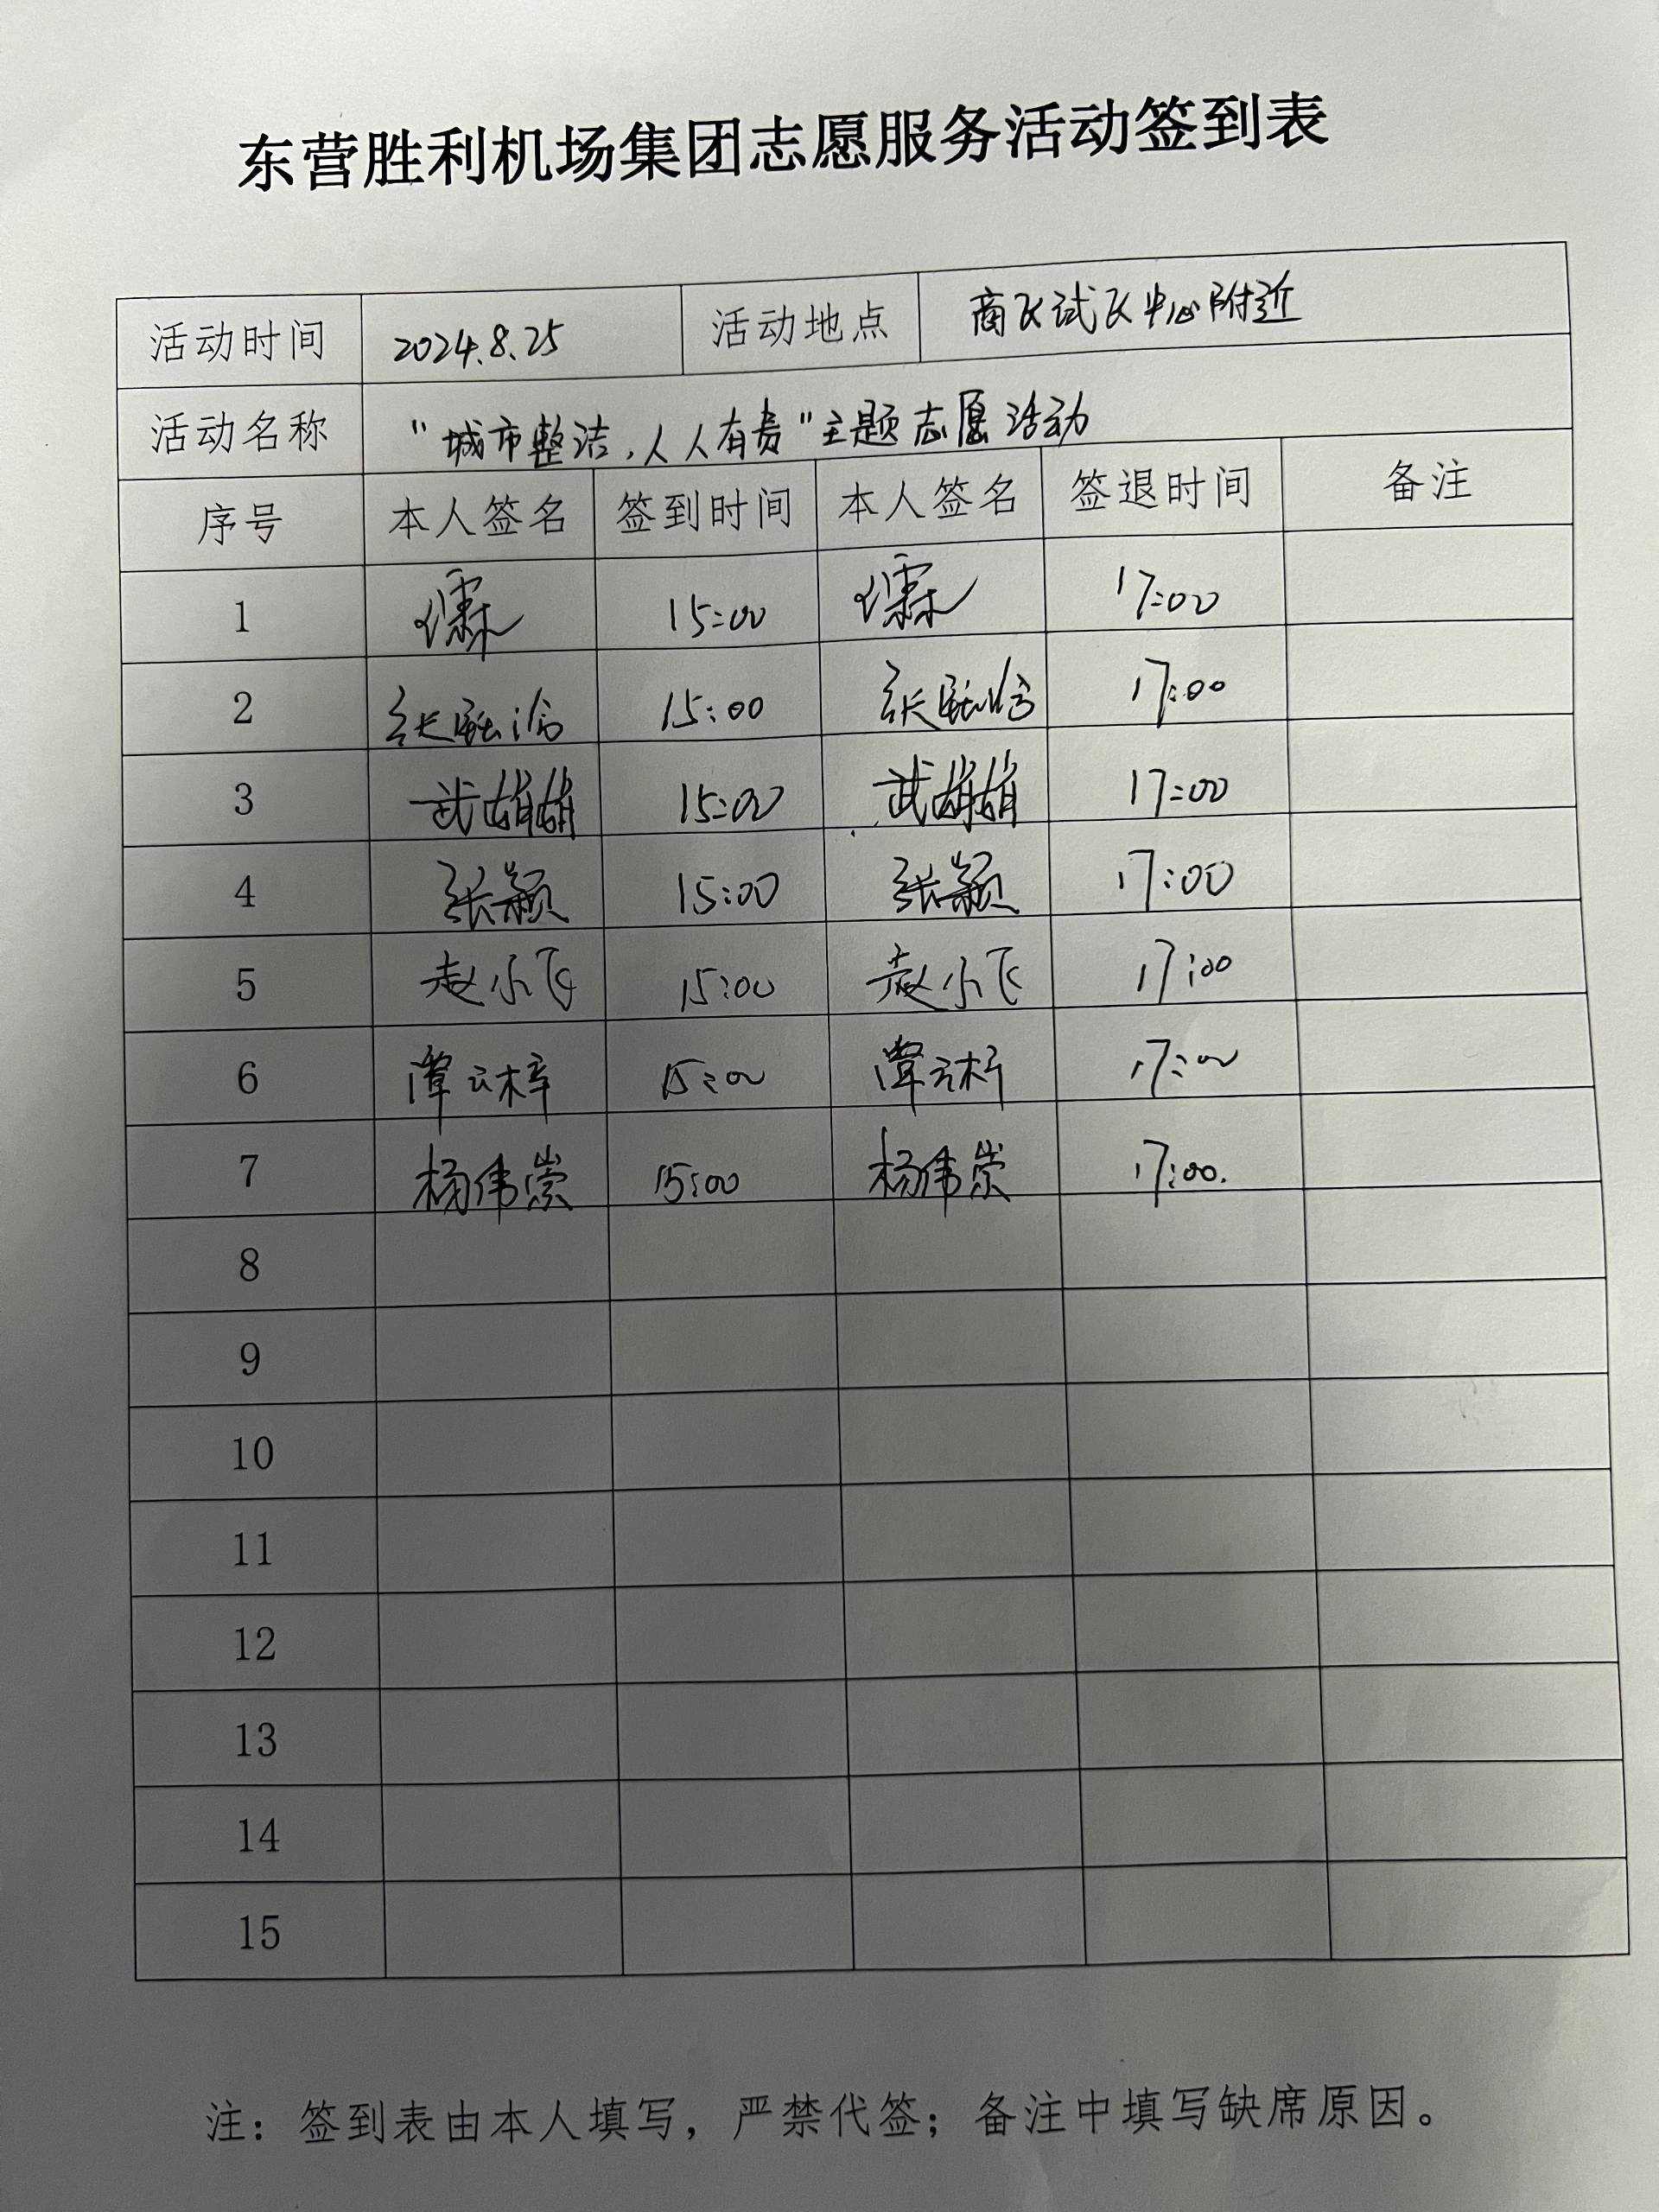 东营胜利机场集团志愿服务活动签到表
活动时间 2024.8.25 活动地点 商飞试飞中心附近
活动名称 “城市整洁,人人有责”主题志愿活动
序号 本人签名 签到时间 本人签名 签退时间 备注
1 15:00 17:00
2 15:00 17:00
3 武娟娟 15:00 武娟娟 17:00
4 张颖 15:00 张颖 17:00
5 赵小飞 15:00 赵小飞 17:00
6 15:00 17:00
7 杨伟崇 15:00 杨伟崇 17:00.
8
9
10
11
12
13
14
15
注：签到表由本人填写，严禁代签；备注中填写缺席原因。